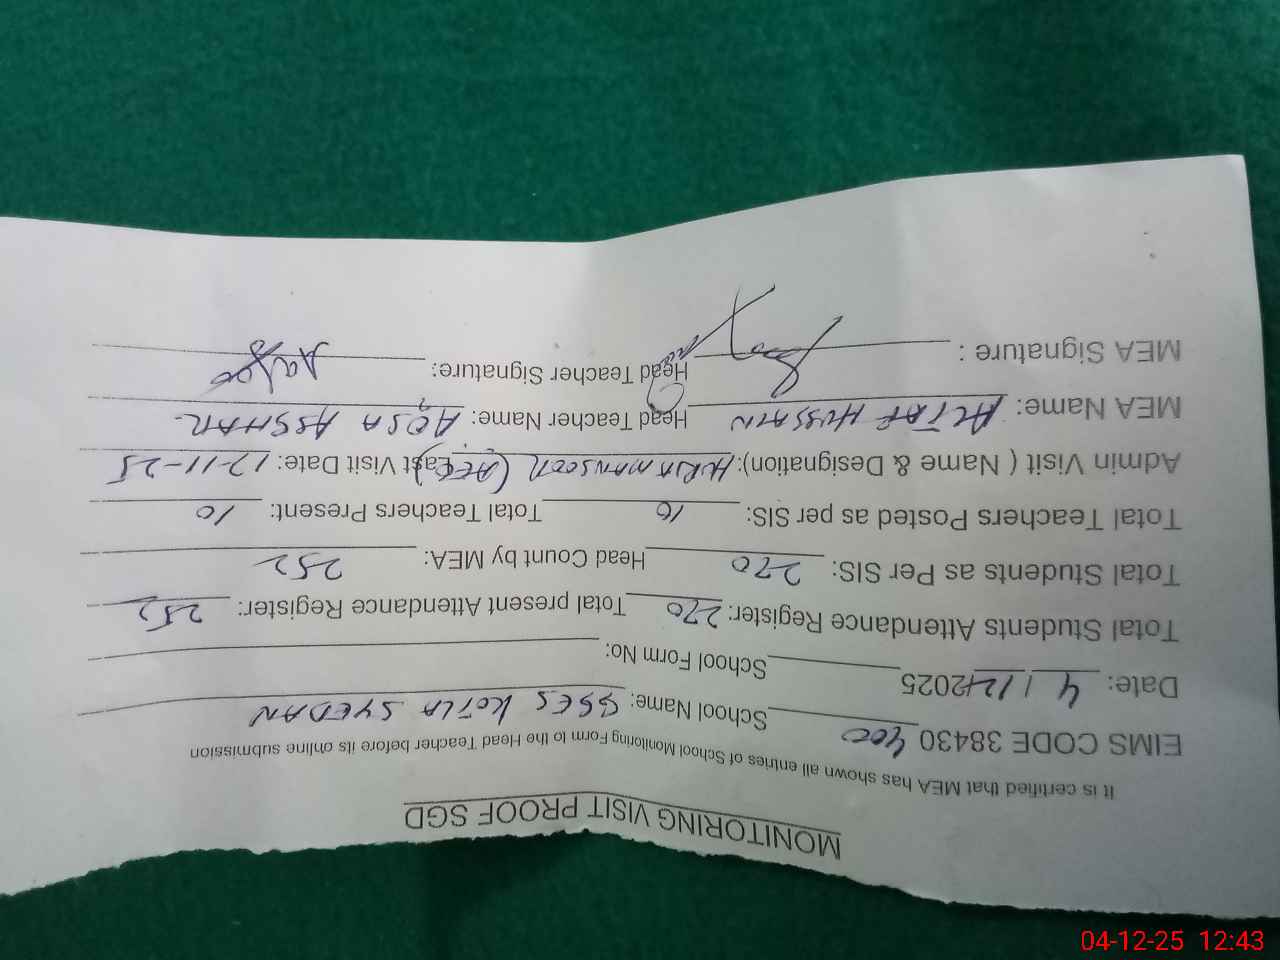 MONITORING VISIT PROOF SGD
It is certified that MEA has shown all entries of School Monitoring Form to the Head Teacher before its online submission
EIMS CODE 38430 400 School Name: GGES KOTLA SYEDAN
Date: 4 / 12 /2025 School Form No:
Total Students Attendance Register: 270 Total present Attendance Register: 252
Total Students as Per SIS: 270 Head Count by MEA: 252
Total Teachers Posted as per SIS: 10 Total Teachers Present: 10
Admin Visit ( Name & Designation): MANSOOR (AEO) Last Visit Date: 17-11-25
MEA Name: ALTAF HUSSAIN Head Teacher Name: AQSA ASGHAR
MEA Signature : Head Teacher Signature:
04-12-25 12:43